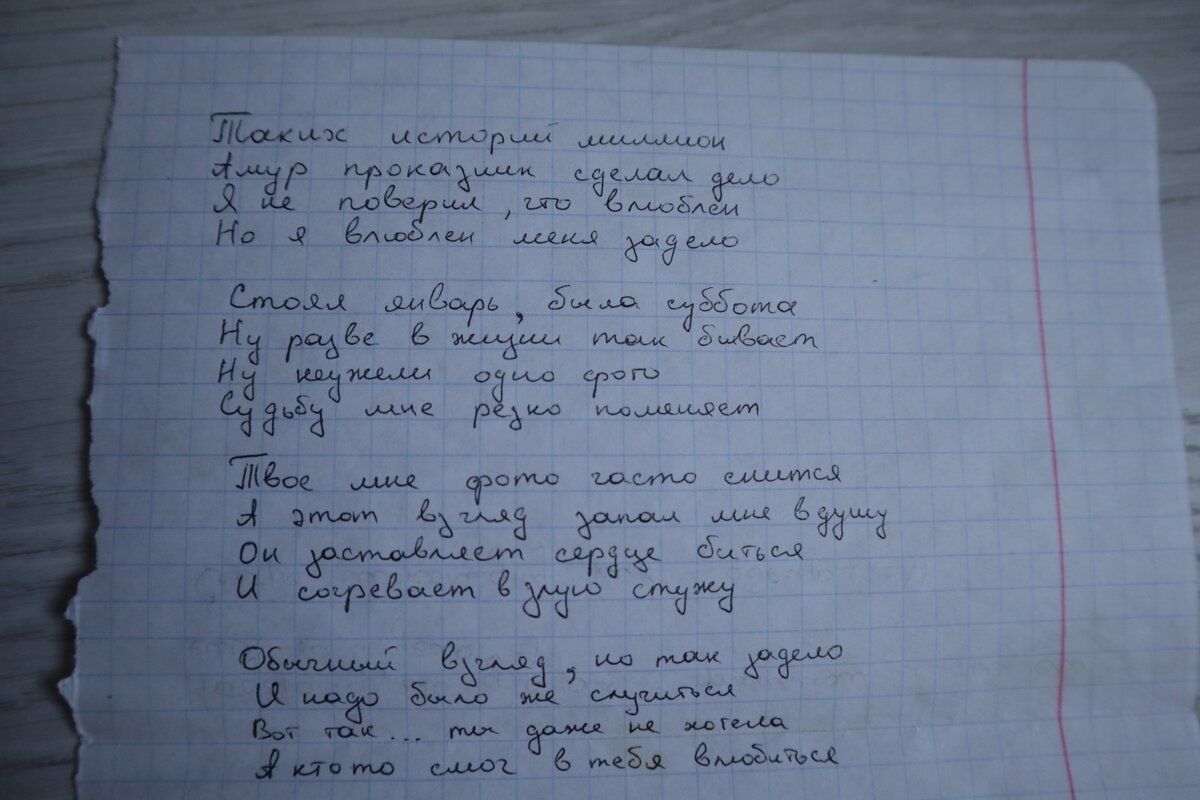 Таких историй миллион
Амур проказник сделал дело
Я не поверил, что влюблен
Но я влюблен меня задело
Стоял январь, была суббота
Ну разве в жизни так бывает
Ну неужели одно фото
Судьбу мне резко поменяет
Твое мне фото часто снится
А этот взгляд запал мне в душу
Он заставляет сердце биться
И согревает в злую стужу
Обычный взгляд, но так задело
И надо было же случиться
Вот так... ты даже не хотела
А кто то смог в тебя влюбиться